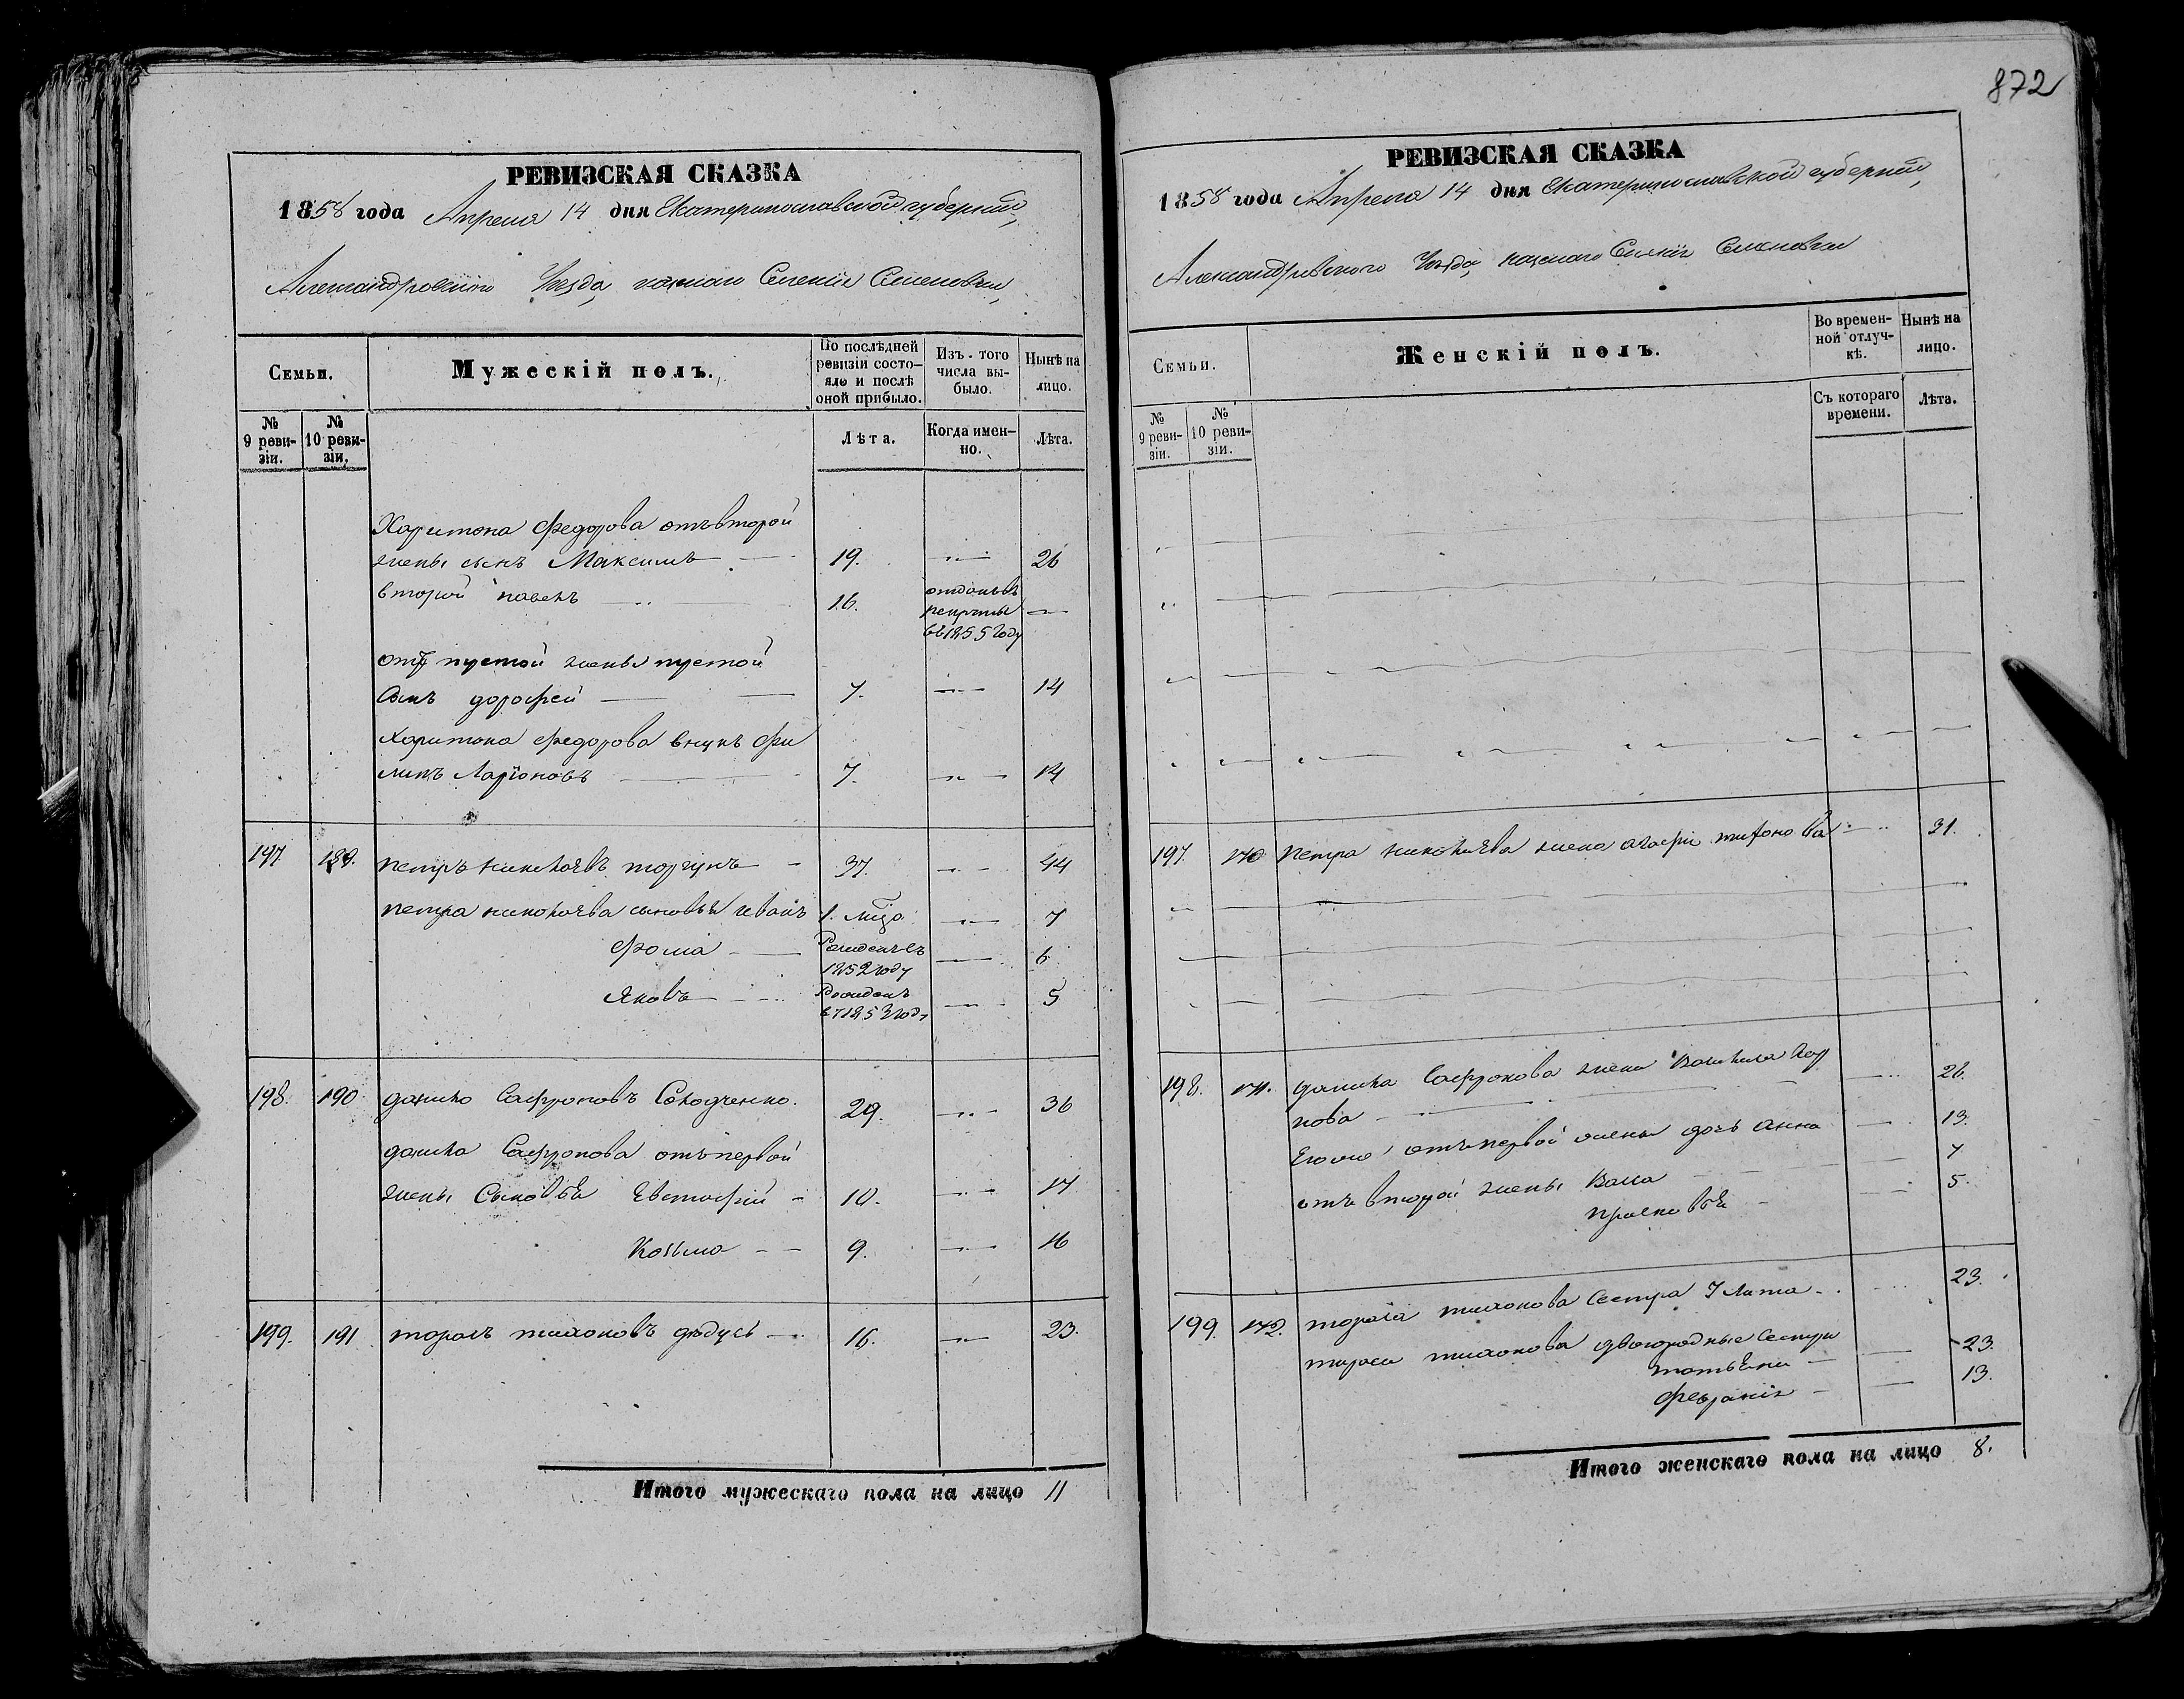 872
РЕВИЗСКАЯ СКАЗКА
1858 года Апреля 14 дня Екатеринославской губернии,
Александровского Уезда, казенаго Селенія Семеновки,
Семьи. Мужескій полъ. По послѣдней ревизіи состояло и послѣ оной прибыло. Изъ того числа выбыло. Нынѣ на лицо.
№ 9 ревизіи. № 10 ревизіи. Лѣта. Когда именно. Лѣта.
Харитона Федорова отъ второй
жены сынъ Максимъ 19. 26
второй павелъ 16. отданъ въ рекруты въ 1855 году
отъ пустой жены пустой
Сынъ дорофей 7. 14
Харитона Федорова внукъ Фи
липъ Ларіоновъ 7. 14
197. 189. петръ николаевъ торгунъ 37. 44
петра николаева сыновья иванъ 1. 7
Фома Рожденъ въ 1852 году 6
Яковъ Рожденъ въ 1853 году 5
198. 190 данило Сафроновъ Солодченко. 29. 36
данила Сафронова отъ первой
жены Сыновья Евстафій 10. 17
Козьма 9. 16
199. 191 тарасъ тихоновъ дѣдусь 16. 23.
Итого мужескаго пола на лицо 11
РЕВИЗСКАЯ СКАЗКА
1858 года Апреля 14 дня Екатеринославской губерніи,
Александровского Уезда, казенаго Селенія Семеновки
Семьи. Женскій полъ. Во временной отлучкѣ. Нынѣ на лицо.
№ 9 ревизіи. № 10 ревизіи. Съ котораго времени. Лѣта.
197. 170 петра николаева жена агафія тихонова 31.
198. 171. данила Сафронова жена
нова 26.
Его же отъ первой жены дочь анна 13.
отъ второй жены Васса 7
прасковья 5.
199. 172. тараса тихонова Сестра Улита 23.
тараса тихонова двоюродные Сестры
татьяна 23.
Февронія 13.
Итого женскаго пола на лицо 8.